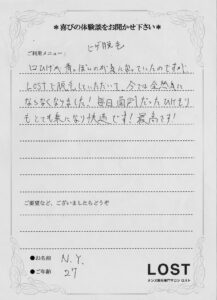 ＊喜びの体験談をお聞かせ下さい＊
ご利用メニュー：
ヒゲ脱毛
口ひげが青っぽいのが気になっていたのですが、
LOSTで脱毛していただいて、今では全然気に
ならなくなりました！毎日面倒だったひげそり
もとても楽になり快適です！最高です！
ご要望など、ございましたらどうぞ
●お名前 N.Y.
●ご年齢 27
LOST
メンズ脱毛専門サロン ロスト